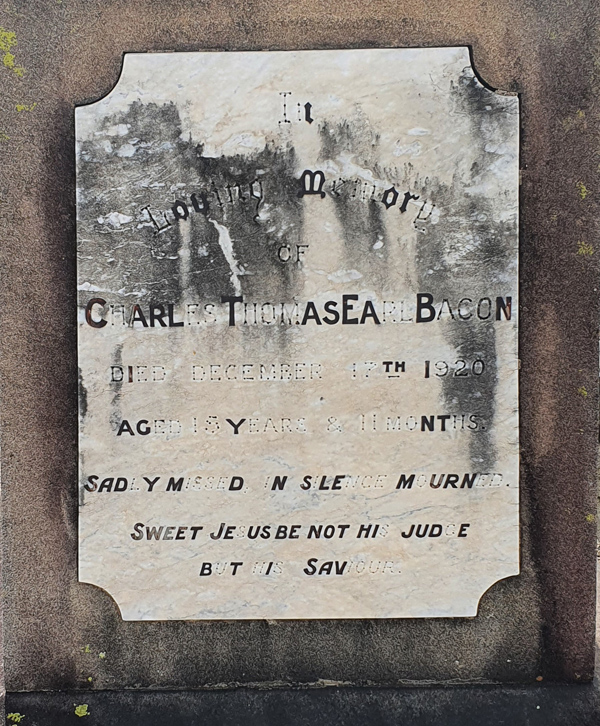 In
Loving Memory
OF
CHARLES THOMAS EARL BACON
DIED DECEMBER 17TH 1920
AGED 18 YEARS & 11 MONTHS.
SADLY MISSED, IN SILENCE MOURNED.
SWEET JESUS BE NOT HIS JUDGE
BUT HIS SAVIOUR.